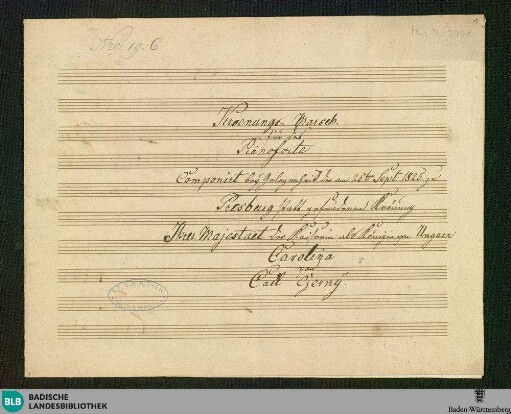 Nro: 19. 6
Mus. Hs.
Kroenungs-Marsch.
für das
Pianoforte
Componirt bey Gelegenheit der am 25ten Sept. 1825 zu
Presburg statt gefundenen Krönung
Ihrer Majestaet der Kaiserin als Königin von Ungarn
Carolina
von
Carl Czerny.
BLB BADISCHE
LANDESBIBLIOTHEK
Baden-Württemberg